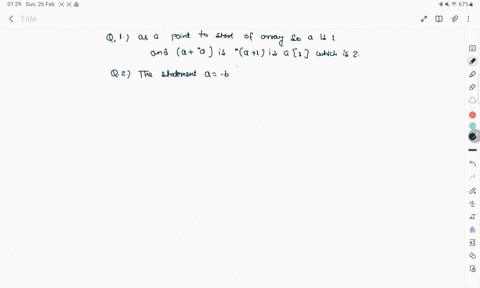 01:29 Sun, 26 Feb
67%
Title
Q.1.) as a point to start of array so a is 1
and (a+ *a] is *(a+1) is a[1] which is 2.
Q.2) The statement a=-b